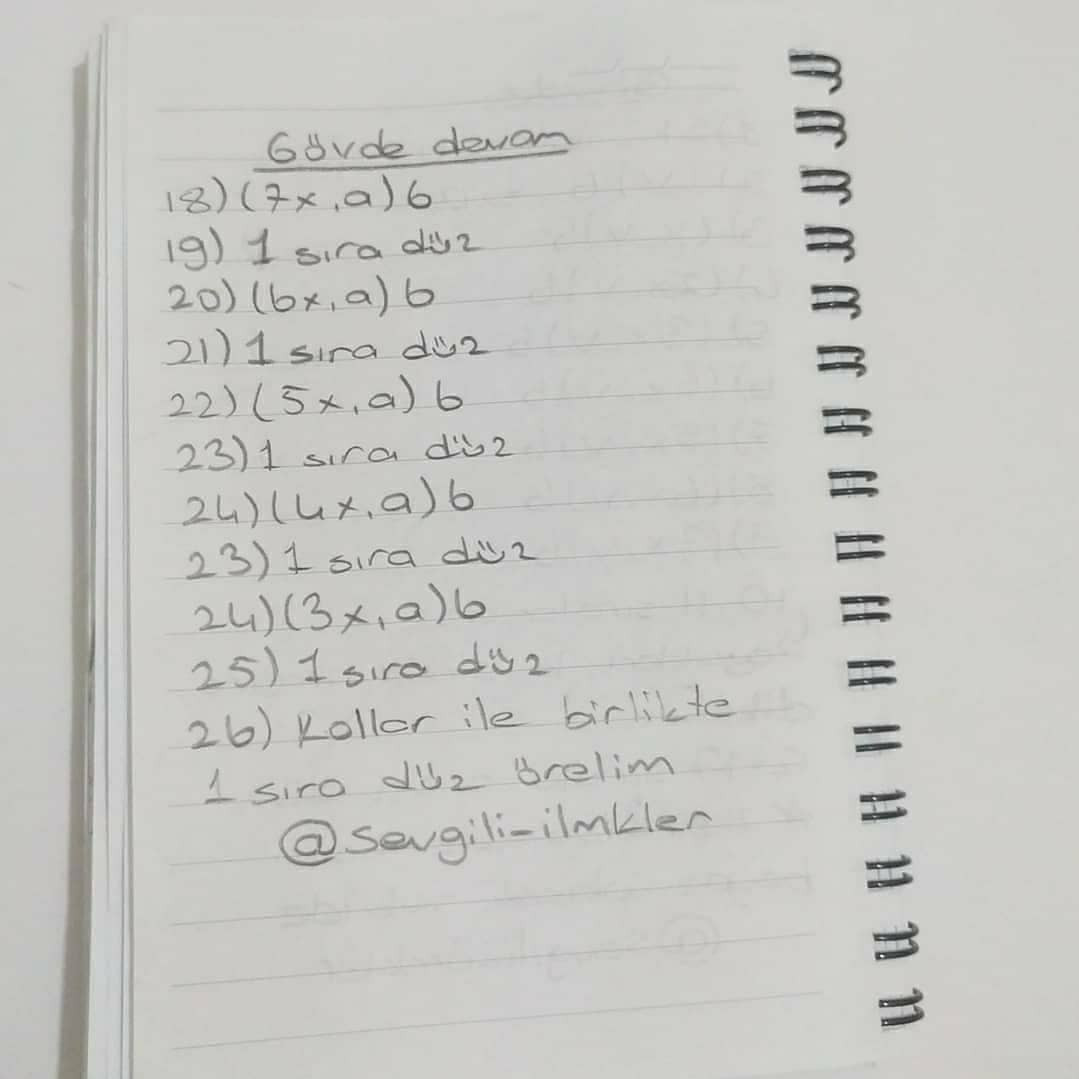 Gövde devam
18) (7x, a) 6
19) 1 sıra düz
20) (6x, a) 6
21) 1 sıra düz
22) (5x, a) 6
23) 1 sıra düz
24) (4x, a) 6
23) 1 sıra düz
24) (3x, a) 6
25) 1 sıra düz
26) Kollar ile birlikte
1 sıra düz örelim
@sevgili-ilmkler